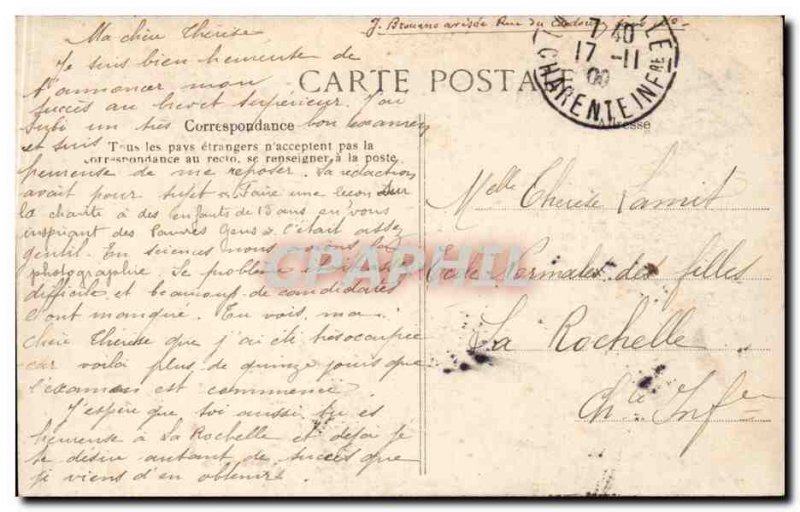 Ma chère Thérèse
Je suis bien heureuse de
t'annoncer mon
succès au brevet supérieur. J'ai
subi un très bon examen
et suis
heureuse de me reposer. La rédaction
avait pour sujet « Faire une leçon sur
la charité à des enfants de 13 ans en vous
inspirant des Pauvres Gens » c'était assez
gentil. En sciences nous avions la
photographie. Le problème était
difficile et beaucoup de candidates
l'ont manqué. Tu vois, ma
chère Thérèse que j'ai été très occupée
car voilà plus de quinze jours que
l'examen est commencé.
J'espère que toi aussi tu es
heureuse à La Rochelle et déjà je
te désire autant de succès que
je viens d'en obtenir.
J. Rue du
CARTE POSTA
Correspondance
Tous les pays étrangers n'acceptent pas la
correspondance au recto, se renseigner à la poste
Adresse
7 40
17 -11
09
CHARENTE INFRE
Melle Thérèse Lamit
Ecole Normale des filles
La Rochelle
Chte Infre
CPAPHIL